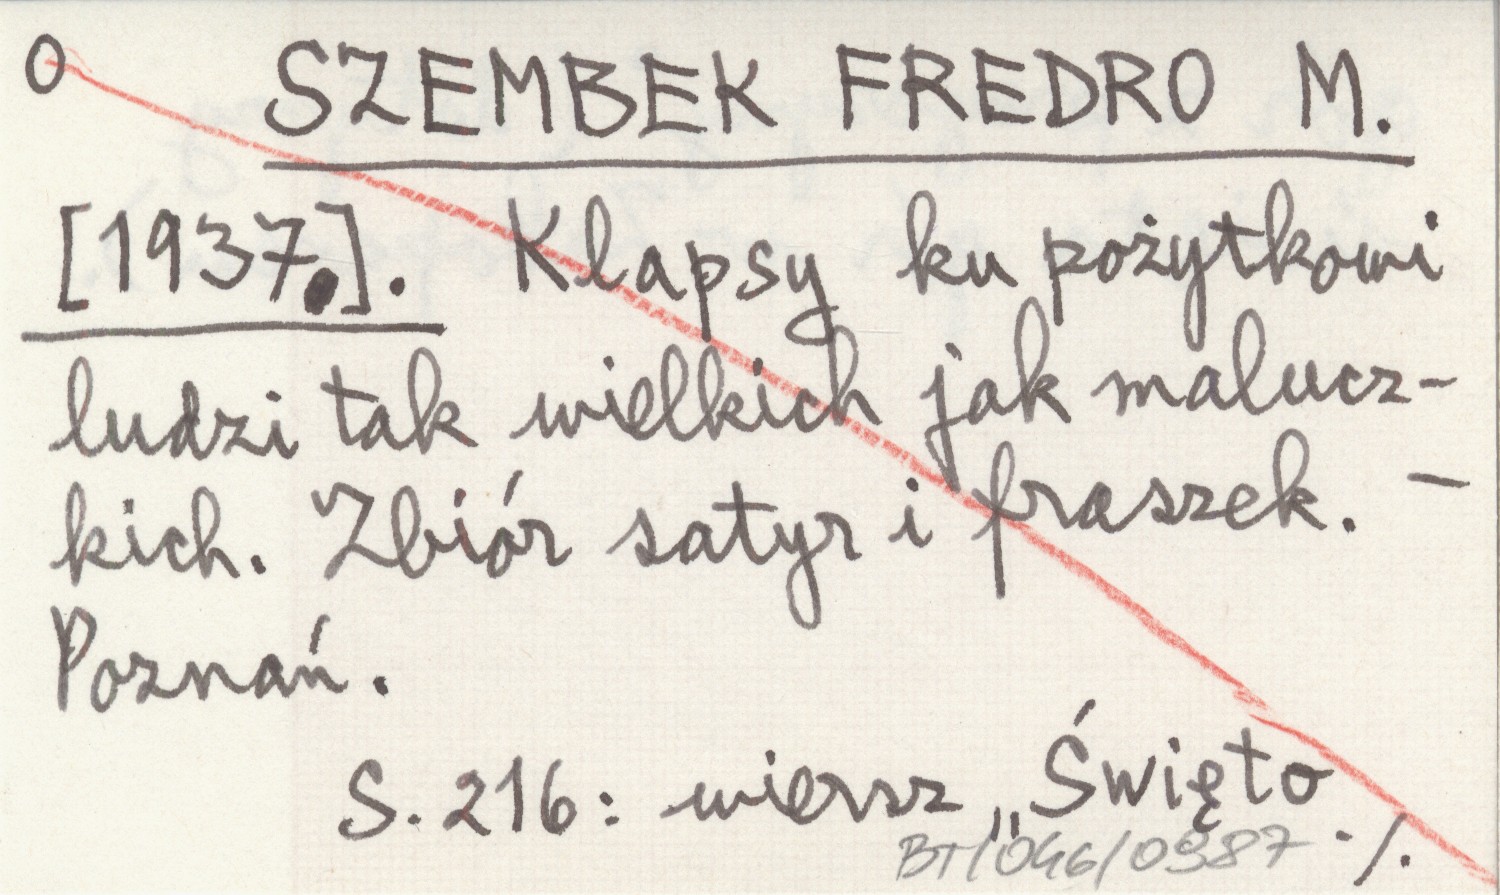 O SZEMBEK FREDRO M.
[1937.]. Klapsy ku pożytkowi
ludzi tak wielkich jak malucz-
kich. Zbiór satyr i fraszek. —
Poznań.
S. 216: wiersz „Święto ./.
BT/046/0987